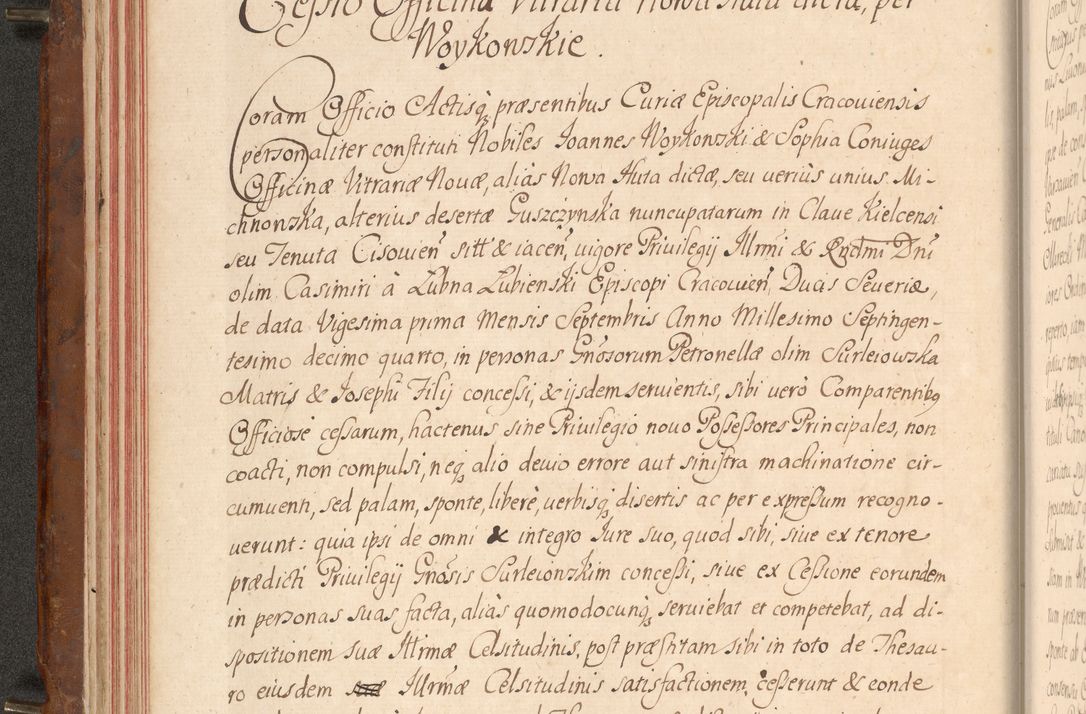 Cessio Officinæ Vitrariæ Nowa Huta dictæ, per
Woykowskie.
Coram Officio Actisq3 præsentibus Curiæ Episcopalis Cracoviensis
personaliter constituti Nobiles Joannes Woykowski & Sophia Coniuges
Officinæ Vitrariæ Novæ, aliàs Nowa Huta dictæ, seu veriùs unius Mi-
chnowska, alterius desertæ Guszczynska nuncupatarum in Clave Kielcensi
seu Tenuta Cisovien sitt & iacen, vigore Privilegij Illrmi & Rndmi Dni
olim Casimiri à Lubna Lubienski Episcopi Cracovien, Ducis Severiæ,
de data Vigesima prima Mensis Septembris Anno Millesimo Septingen-
tesimo decimo quarto, in personas Gnosorum Petronellæ olim Surleiowska
Matris & Josephi Filij concessi, & ijsdem servientis, sibi verò Comparentibq
Officiosè cessarum, hactenus sine Privilegio novo Possessores Principales, non
coacti, non compulsi, neq3 alio devio errore aut sinistra machinatione cir-
cumventi, sed palam, sponte, liberè, verbisq3 disertis ac per expressum recogno-
verunt: quia ipsi de omni & integro Jure suo, quod sibi, sive ex tenore
prædicti Privilegij Gnosis Surleiowskim concessi, sive ex Cessione eorundem
in personas suas facta, aliàs quomodocunq3, serviebat et competebat, ad di-
spositionem suæ Illrmæ Celsitudinis, post præstitam sibi in toto de Thesau-
ro eiusdem Illrmæ Celsitudinis satisfactionem, cesserunt & eonde